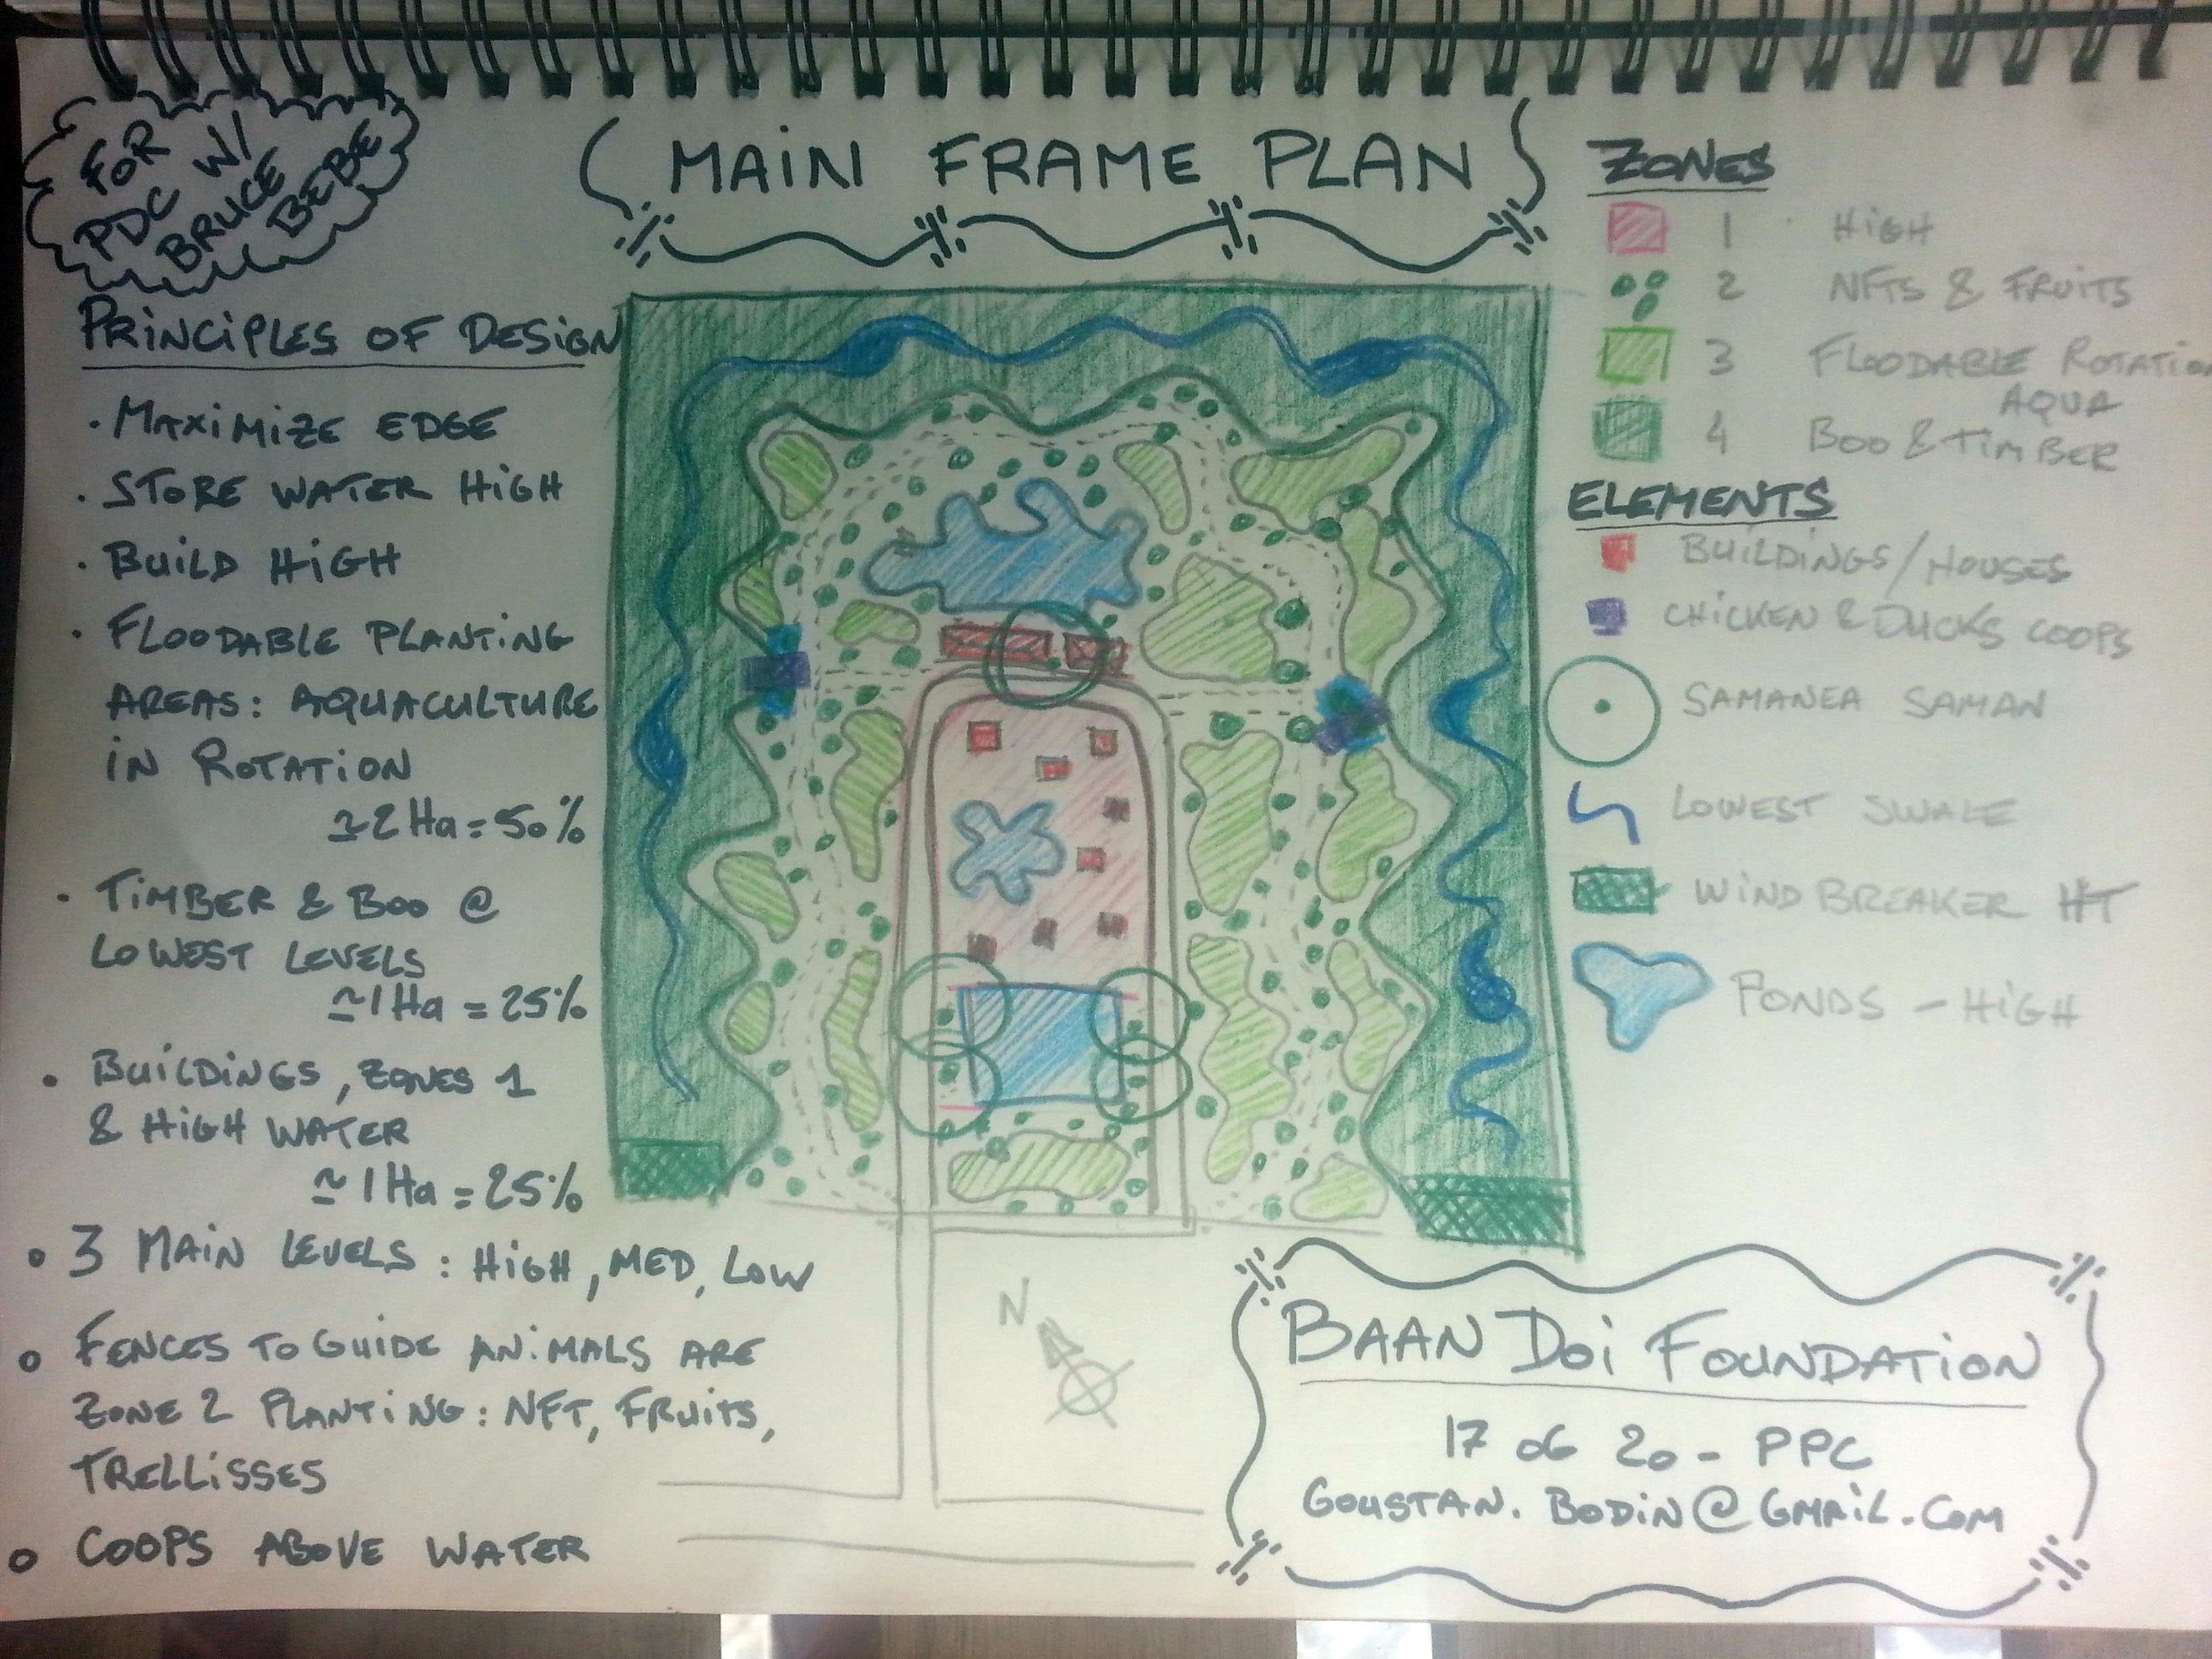 FOR
PDC W/
BRUCE
BEBE
MAIN FRAME PLAN
PRINCIPLES OF DESIGN
· MAXIMIZE EDGE
· STORE WATER HIGH
· BUILD HIGH
· FLOODABLE PLANTING
AREAS: AQUACULTURE
IN ROTATION
≃2 Ha = 50%
· TIMBER & BOO @
LOWEST LEVELS
≃1 Ha = 25%
· BUILDINGS, ZONES 1
& HIGH WATER
≃1 Ha = 25%
· 3 MAIN LEVELS: HIGH, MED, LOW
· FENCES TO GUIDE ANIMALS ARE
ZONE 2 PLANTING: NFT, FRUITS,
TRELLISSES
· COOPS ABOVE WATER
ZONES
1 HIGH
2 NFTS & FRUITS
3 FLOODABLE ROTATION
AQUA
4 BOO & TIMBER
ELEMENTS
BUILDINGS/HOUSES
CHICKEN & DUCKS COOPS
SAMANEA SAMAN
LOWEST SWALE
WIND BREAKER HT
PONDS - HIGH
N
BAAN DOI FOUNDATION
17 06 20 - PPC
GOUSTAN.BODIN@GMAIL.COM